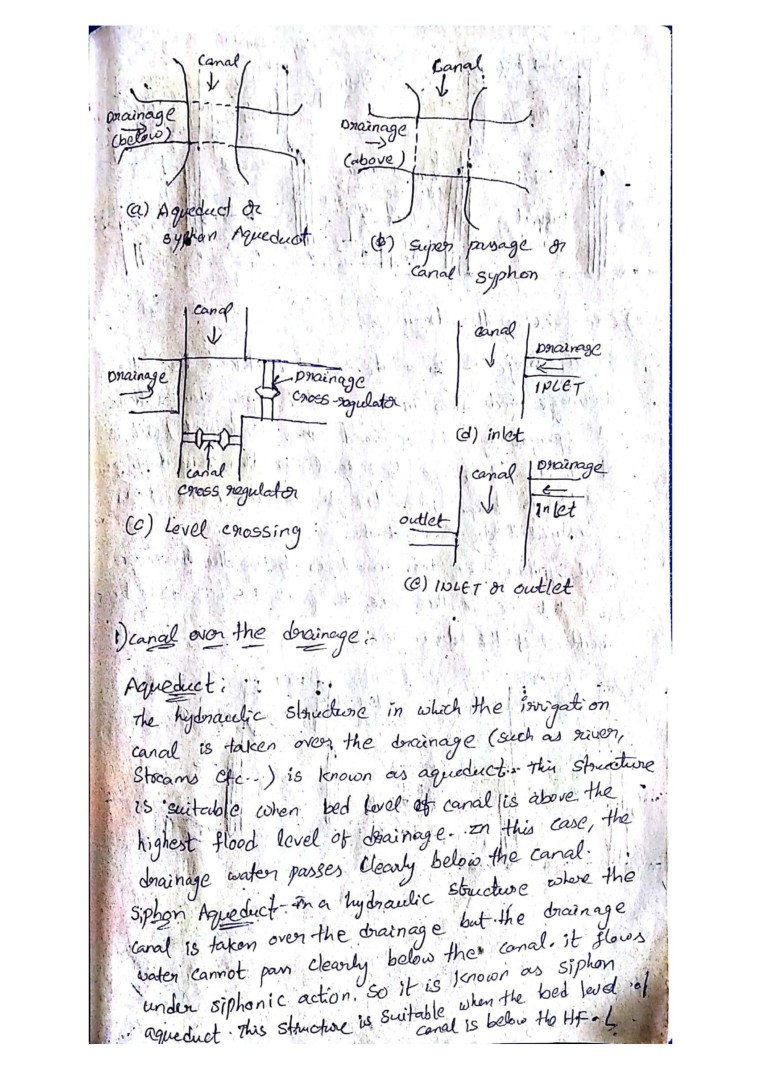 Canal
Drainage
(below)
(a) Aqueduct or
syphon Aqueduct
Canal
Drainage
(above)
(b) Super passage or
Canal syphon
Canal
Drainage
Drainage
cross-regulator
Canal
cross regulator
(c) Level crossing
Canal
Drainage
INLET
(d) inlet
canal
Drainage
Inlet
outlet
(e) INLET or outlet
1) canal over the drainage :-
Aqueduct :
The hydraulic structure in which the irrigation
canal is taken over the drainage (such as river,
Streams etc..) is known as aqueduct. This structure
is suitable when bed level of canal is above the
highest flood level of drainage. In this case, the
drainage water passes clearly below the canal.
Siphon Aqueduct - In a hydraulic structure where the
canal is taken over the drainage but the drainage
water cannot pass clearly below the canal. it flows
under siphonic action. So it is known as siphon
aqueduct. This structure is suitable when the bed level of
canal is below the HF.L